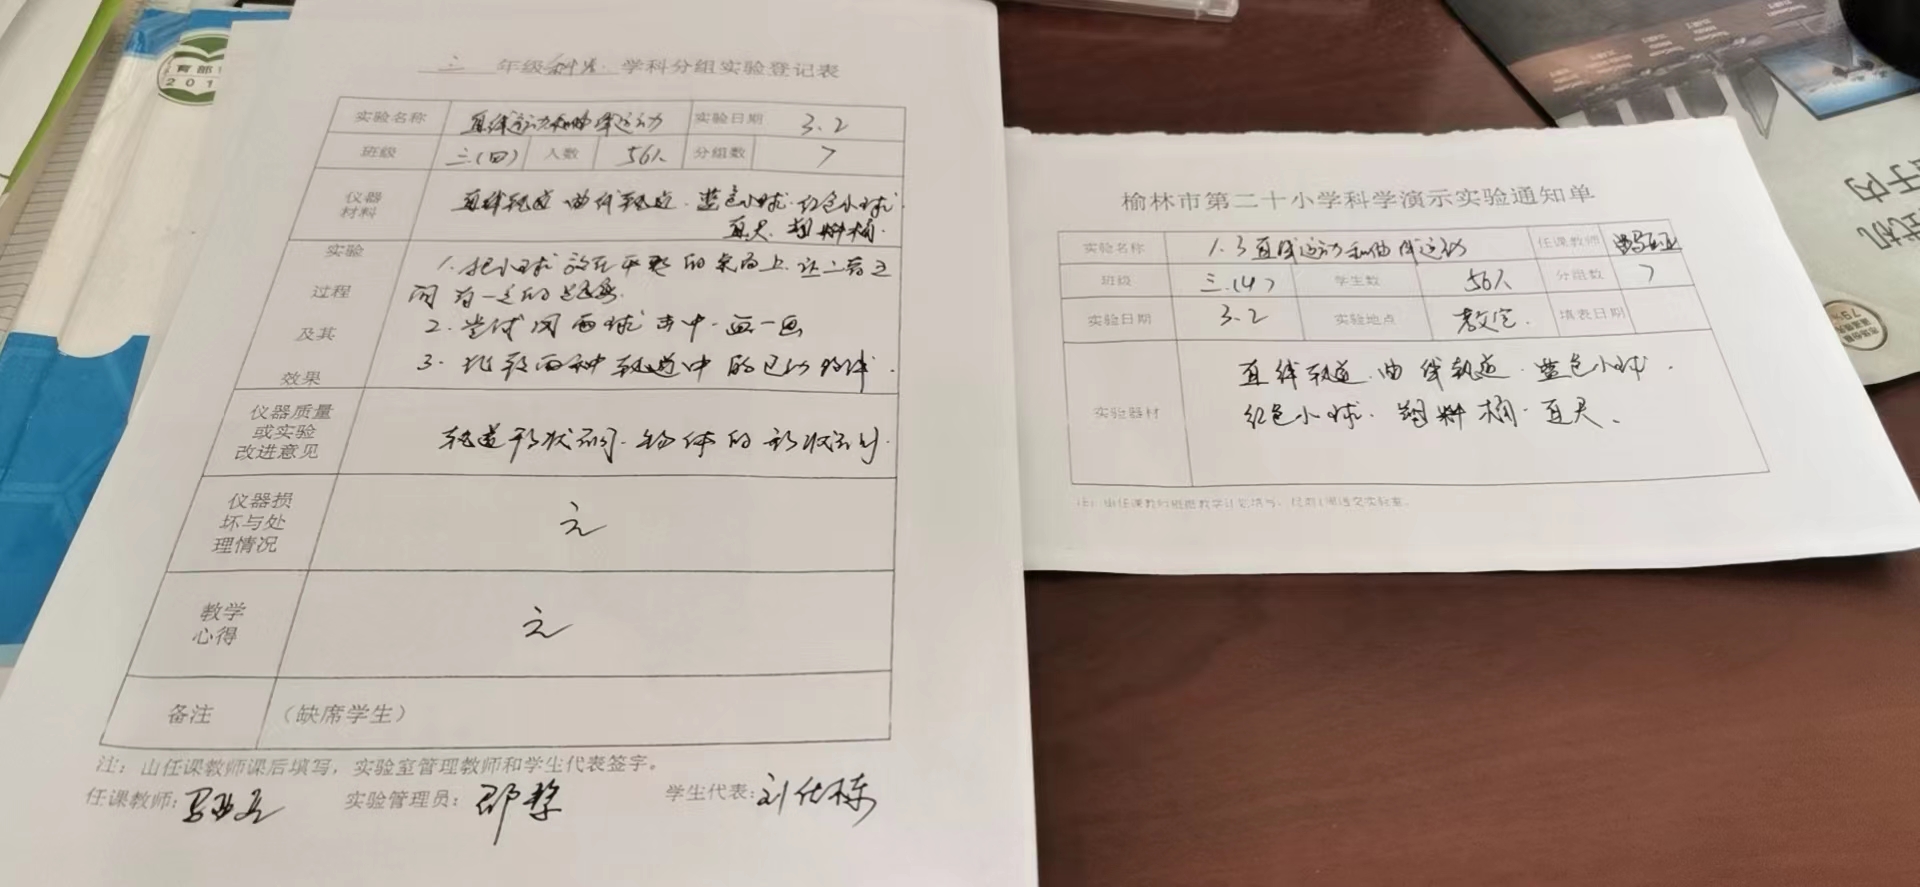 三 年级 科学 学科分组实验登记表
实验名称 直线运动和曲线运动 实验日期 3.2
班级 三(四) 人数 56人 分组数 7
仪器材料 直线轨道 曲线轨道.蓝色小球.红色小球.
直尺.塑料桶.
实验过程及其效果
1.把小球放在平整的桌面上.让二者之
间有一定的距离.
2.尝试用两球击中.画一画
3.比较两种轨道中的运动物体.
仪器质量或实验改进意见 轨道形状不同.物体的形状不同.
仪器损坏与处理情况 无
教学心得 无
备注 （缺席学生）
注：由任课教师课后填写，实验室管理教师和学生代表签字。
任课教师: 实验管理员: 学生代表:
榆林市第二十小学科学演示实验通知单
实验名称 1.3直线运动和曲线运动 任课教师
班级 三.(4) 学生数 56人 分组数 7
实验日期 3.2 实验地点 教室. 填表日期
实验器材 直线轨道.曲线轨道.蓝色小球.
红色小球.塑料桶.直尺.
注：由任课教师根据教学计划填写，
育部
201
79%